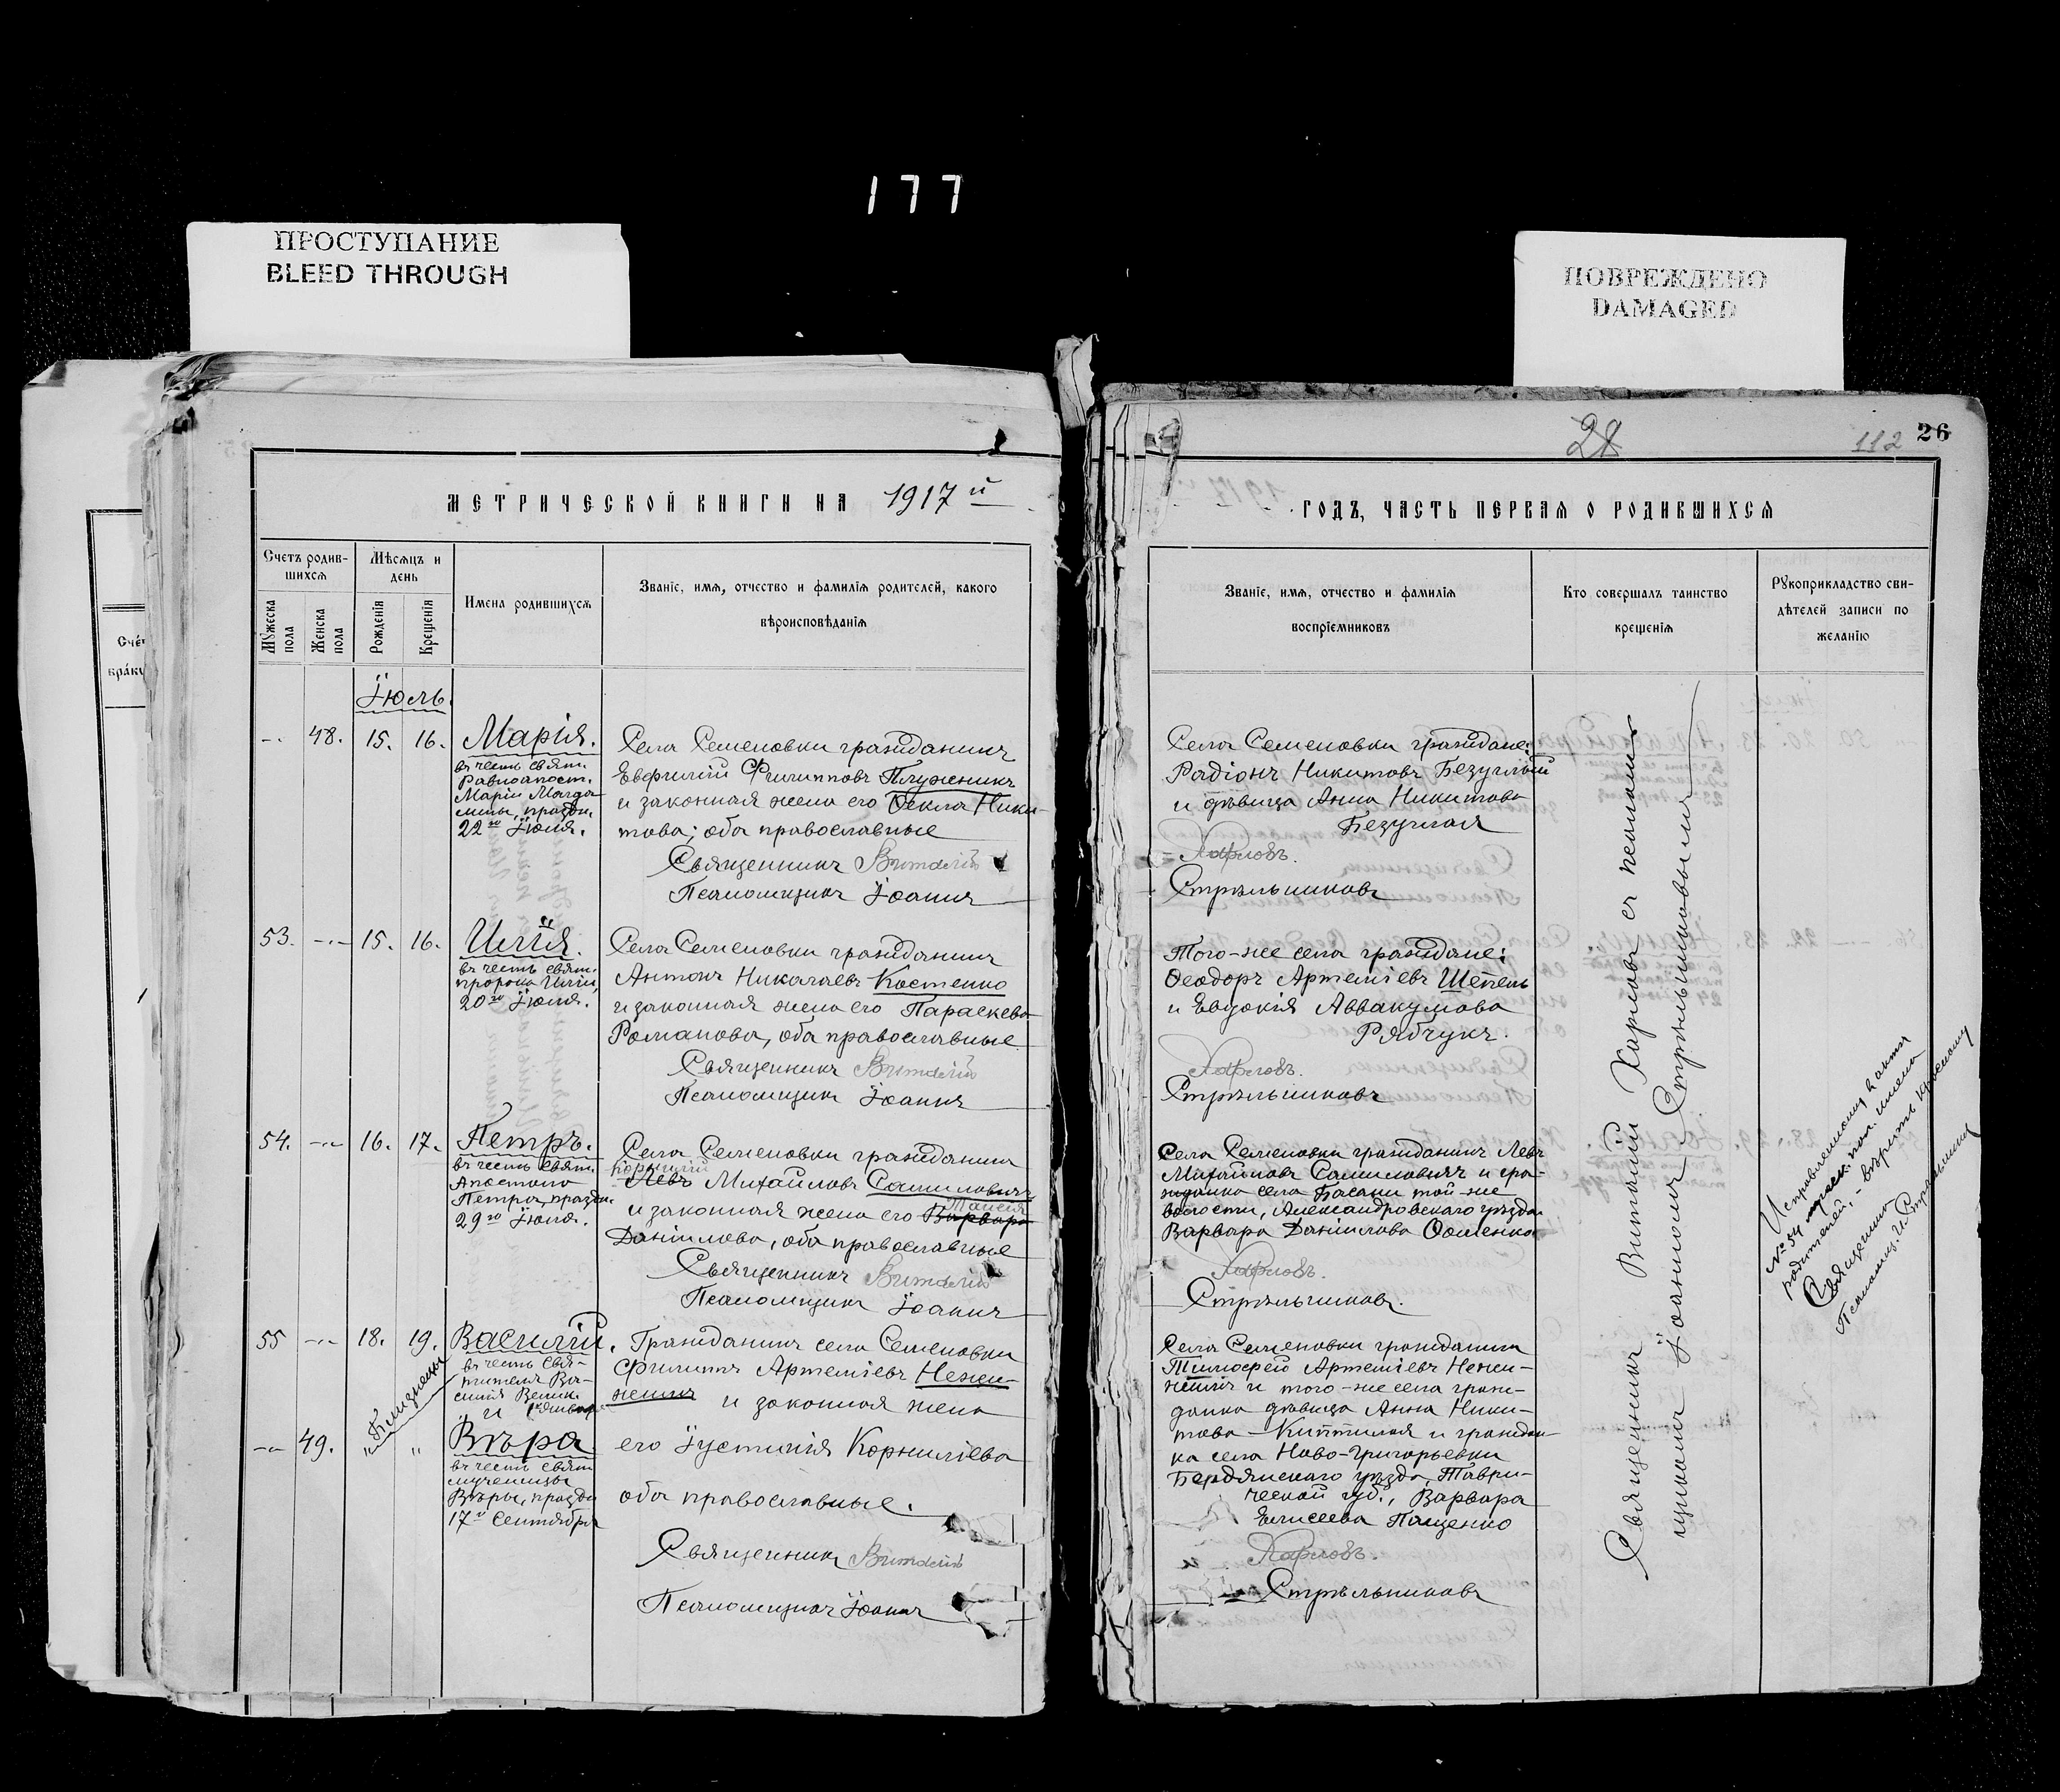 177
ПРОСТУПАНИЕ
BLEED THROUGH
ПОВРЕЖДЕНО
DAMAGED
Счет
браку
МЕТРИЧЕСКОЙ КНИГИ НА 1917 й
Счетъ родив-
шихся
Мѣсяцъ и
день
Мужеска
пола
Женска
пола
Рожденія
Крещенія
Имена родившихся
Званіе, имя, отчество и фамилія родителей, какого
вѣроисповѣданія
Іюль.
48. 15. 16.
Марія.
въ честь свят.
Равноапост.
Маріи Магда-
лины, праздн.
22го Іюля.
Села Семеновки гражданинъ
Евфимій Филипповъ Плужникъ
и законная жена его Ѳекла Ники-
това; оба православные
Священникъ Виталій
Псаломщикъ Іоаннъ
53. 15. 16.
Илія.
въ честь свят.
пророка Иліи,
20го Іюля.
Села Семеновки гражданинъ
Антонъ Николаевъ Костенко
и законная жена его Параскева
Романова, оба православные
Священникъ Виталій
Псаломщикъ Іоаннъ
54. 16. 17.
Петръ.
въ честь свят.
Апостола
Петра, праздн.
29го Іюня.
Села Семеновки гражданинъ
Корнилій
Левъ Михайловъ Самиловичъ
Таисія
и законная жена его Варвара
Даніилова, оба православные
Священникъ Виталій
Псаломщикъ Іоаннъ
55 18. 19.
Василій.
въ честь свя-
тителя Ва-
силія Велик.
и 1 января
Гражданинъ села Семеновки
Филиппъ Артеміевъ Нежи-
и законная жена
„Близнецы
49.
Вѣра
въ честь свят.
мученицы
Вѣры, праздн.
17го Сентября
его Іустинія Корниліева
оба православные.
Священникъ Виталій
Псаломщикъ Іоаннъ
28
112 26
ГОДЪ, ЧАСТЬ ПЕРВАЯ О РОДИВШИХСЯ
Званіе, имя, отчество и фамилія
воспріемниковъ
Кто совершалъ таинство
крещенія
Рукоприкладство сви-
дѣтелей записи по
желанію
Села Семеновки граждане:
Родіонъ Никитовъ Безуглый
и дѣвица Анна Никитова
Безуглая
Харловъ.
Стрѣльниковъ
Того-же села граждане:
Ѳеодоръ Артеміевъ Шепель
и Евдокія Аввакумова
Рябчукъ.
Харловъ.
Стрѣльниковъ
Села Семеновки гражданинъ Левъ
Михайловъ Самиловичъ и гра-
жданка села Басани той-же
волости, Александровскаго уѣзда
Варвара Даніилова Ѳоменко
Харловъ.
Стрѣльниковъ.
Села Семеновки гражданинъ
Тимоѳей Артеміевъ Нежи-
и того-же села граж-
данка дѣвица Анна Ники-
това и граждан-
ка села Ново-Григорьевки
Бердянскаго уѣзда, Таври-
ческой губ., Варвара
Елисеева Пащенко
Харловъ.
Стрѣльниковъ
Священникъ Виталій Харловъ съ псалом-
щикомъ Іоанномъ Стрѣльниковымъ
Исправленному въ актѣ
№ 54 муск. пол. имена
родителей, - вѣрить
Священникъ
Псаломщ. И. Стрѣльниковъ